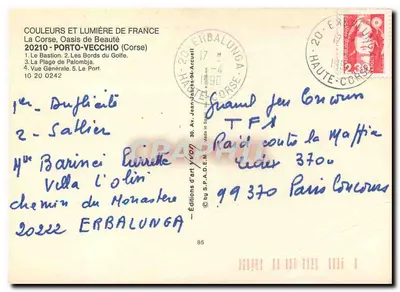 COULEURS ET LUMIÈRE DE FRANCE
La Corse, Oasis de Beauté
20210 - PORTO-VECCHIO (Corse)
1. Le Bastion. 2. Les Bords du Golfe.
3. La Plage de Palombja.
4. Vue Générale. 5. Le Port
10 20 0242
1er Duplicité
2 - Sablier
Mme Barinci Pierrette
Villa l'Olivi
chemin du Monastère
20222 ERBALUNGA
- Éditions d'art yvon - 30, Av. Jean-Jaurès 94-Arcueil
by S.P.A.D.E.M.
86
20 - ERBALUNGA
17 H
1990
HAUTE-CORSE
20 - ERBALUNGA
17
HAUTE-CORSE
2,30
Grand Jeu Concours
TF1
Raid contre la Maffia
Cedex 3700
99370 Paris Concours